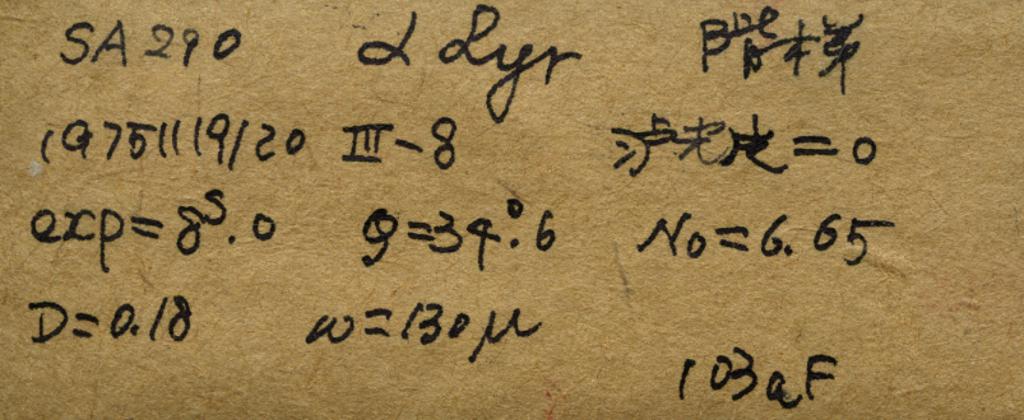 SA290 α Lyr 阶梯
19751119/20 III-8 滤光片=0
exp=8ˢ.0 φ=34°.6 No=6.65
D=0.18 ω=130μ
103aF